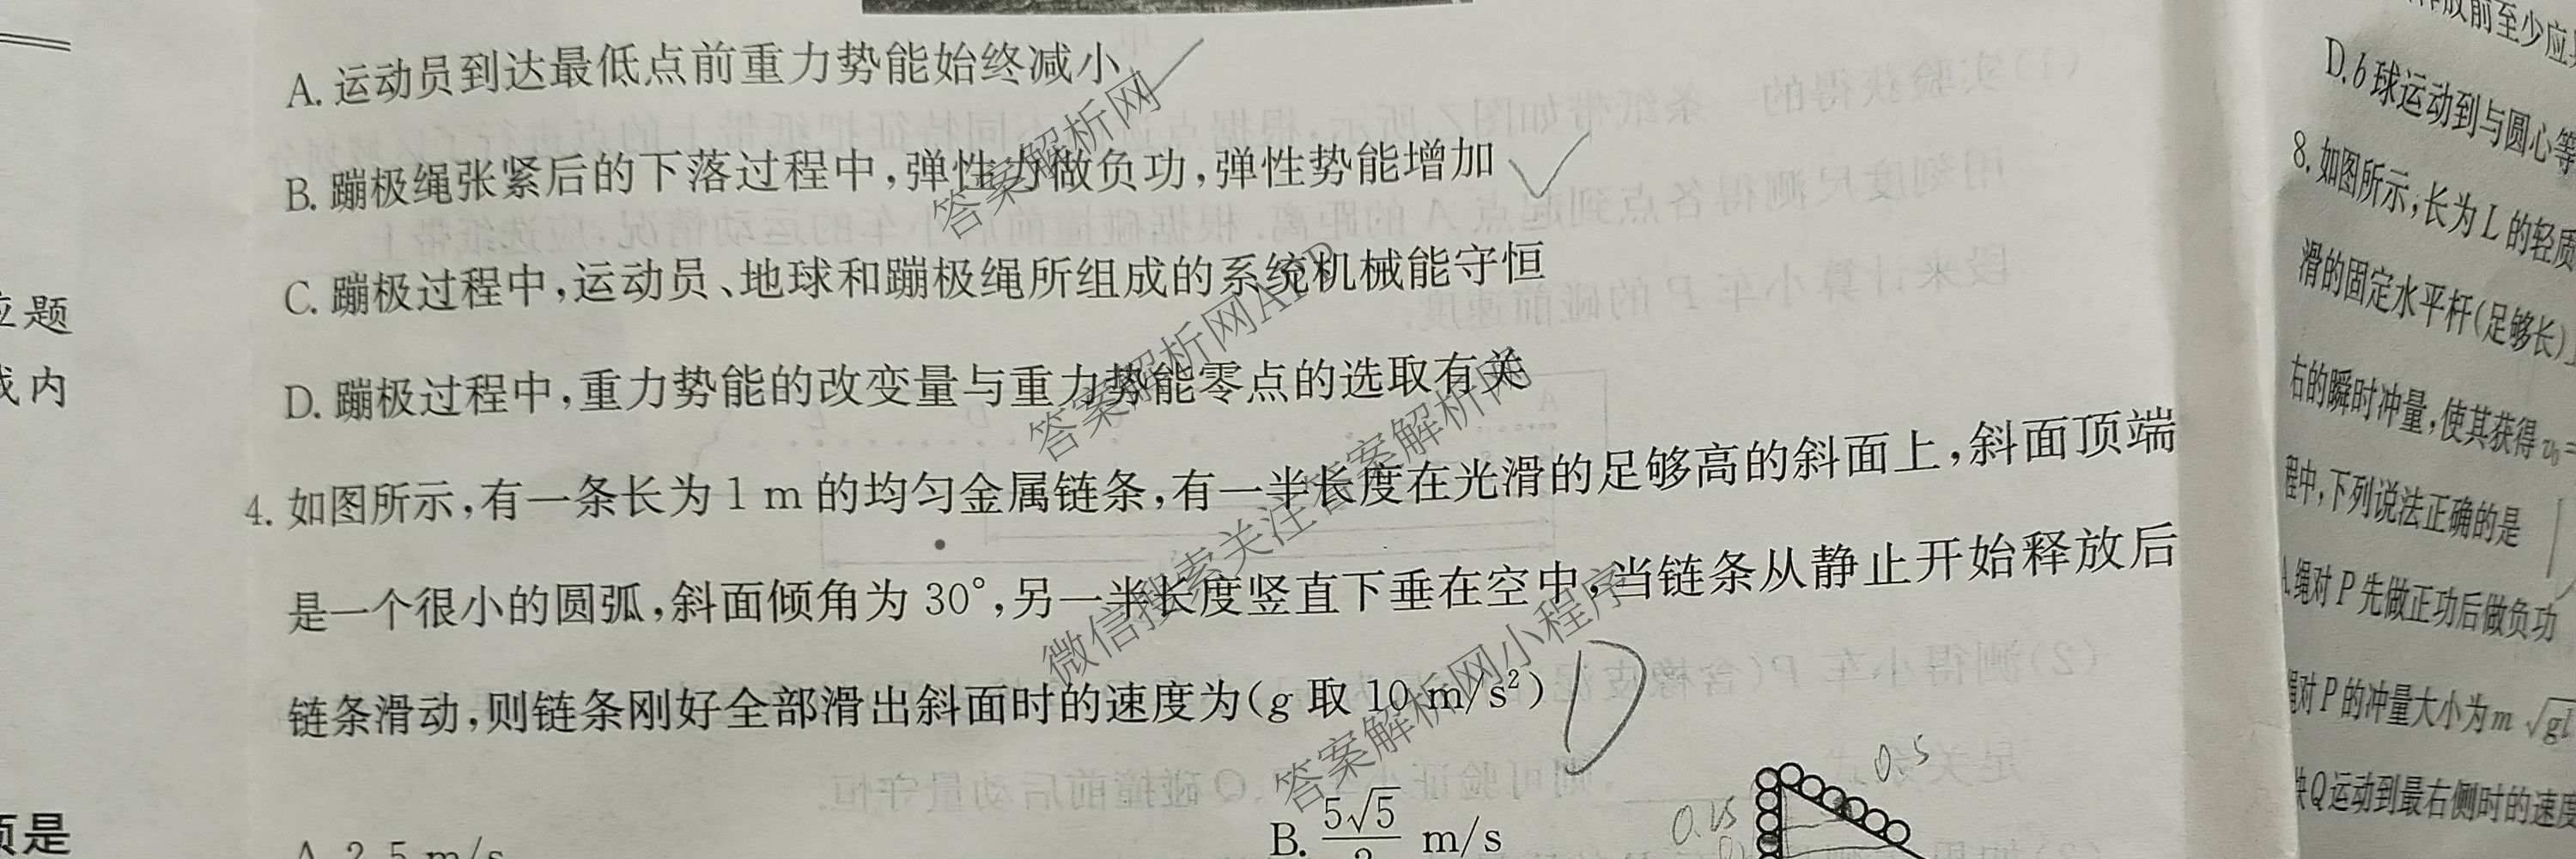 A. 运动员到达最低点前重力势能始终减小
B. 蹦极绳张紧后的下落过程中,弹性力做负功,弹性势能增加
C. 蹦极过程中,运动员、地球和蹦极绳所组成的系统机械能守恒
D. 蹦极过程中,重力势能的改变量与重力势能零点的选取有关
4. 如图所示,有一条长为 1 m 的均匀金属链条,有一半长度在光滑的足够高的斜面上,斜面顶端
是一个很小的圆弧,斜面倾角为 30°,另一半长度竖直下垂在空中,当链条从静止开始释放后
链条滑动,则链条刚好全部滑出斜面时的速度为(g 取 10 m/s²) D
A. 2.5 m/s
B. 5√5 m/s
0.5
题
内
是
放前至少应
D. b 球运动到与圆心等
8. 如图所示,长为 L 的轻质
滑的固定水平杆(足够长)
右的瞬时冲量,使其获得 v₀
程中,下列说法正确的是
A. 绳对 P 先做正功后做负功
对 P 的冲量大小为 m √gl
Q 运动到最右侧时的速度
答案解析网
答案解析网APP
微信搜索关注答案解析网
答案解析网小程序